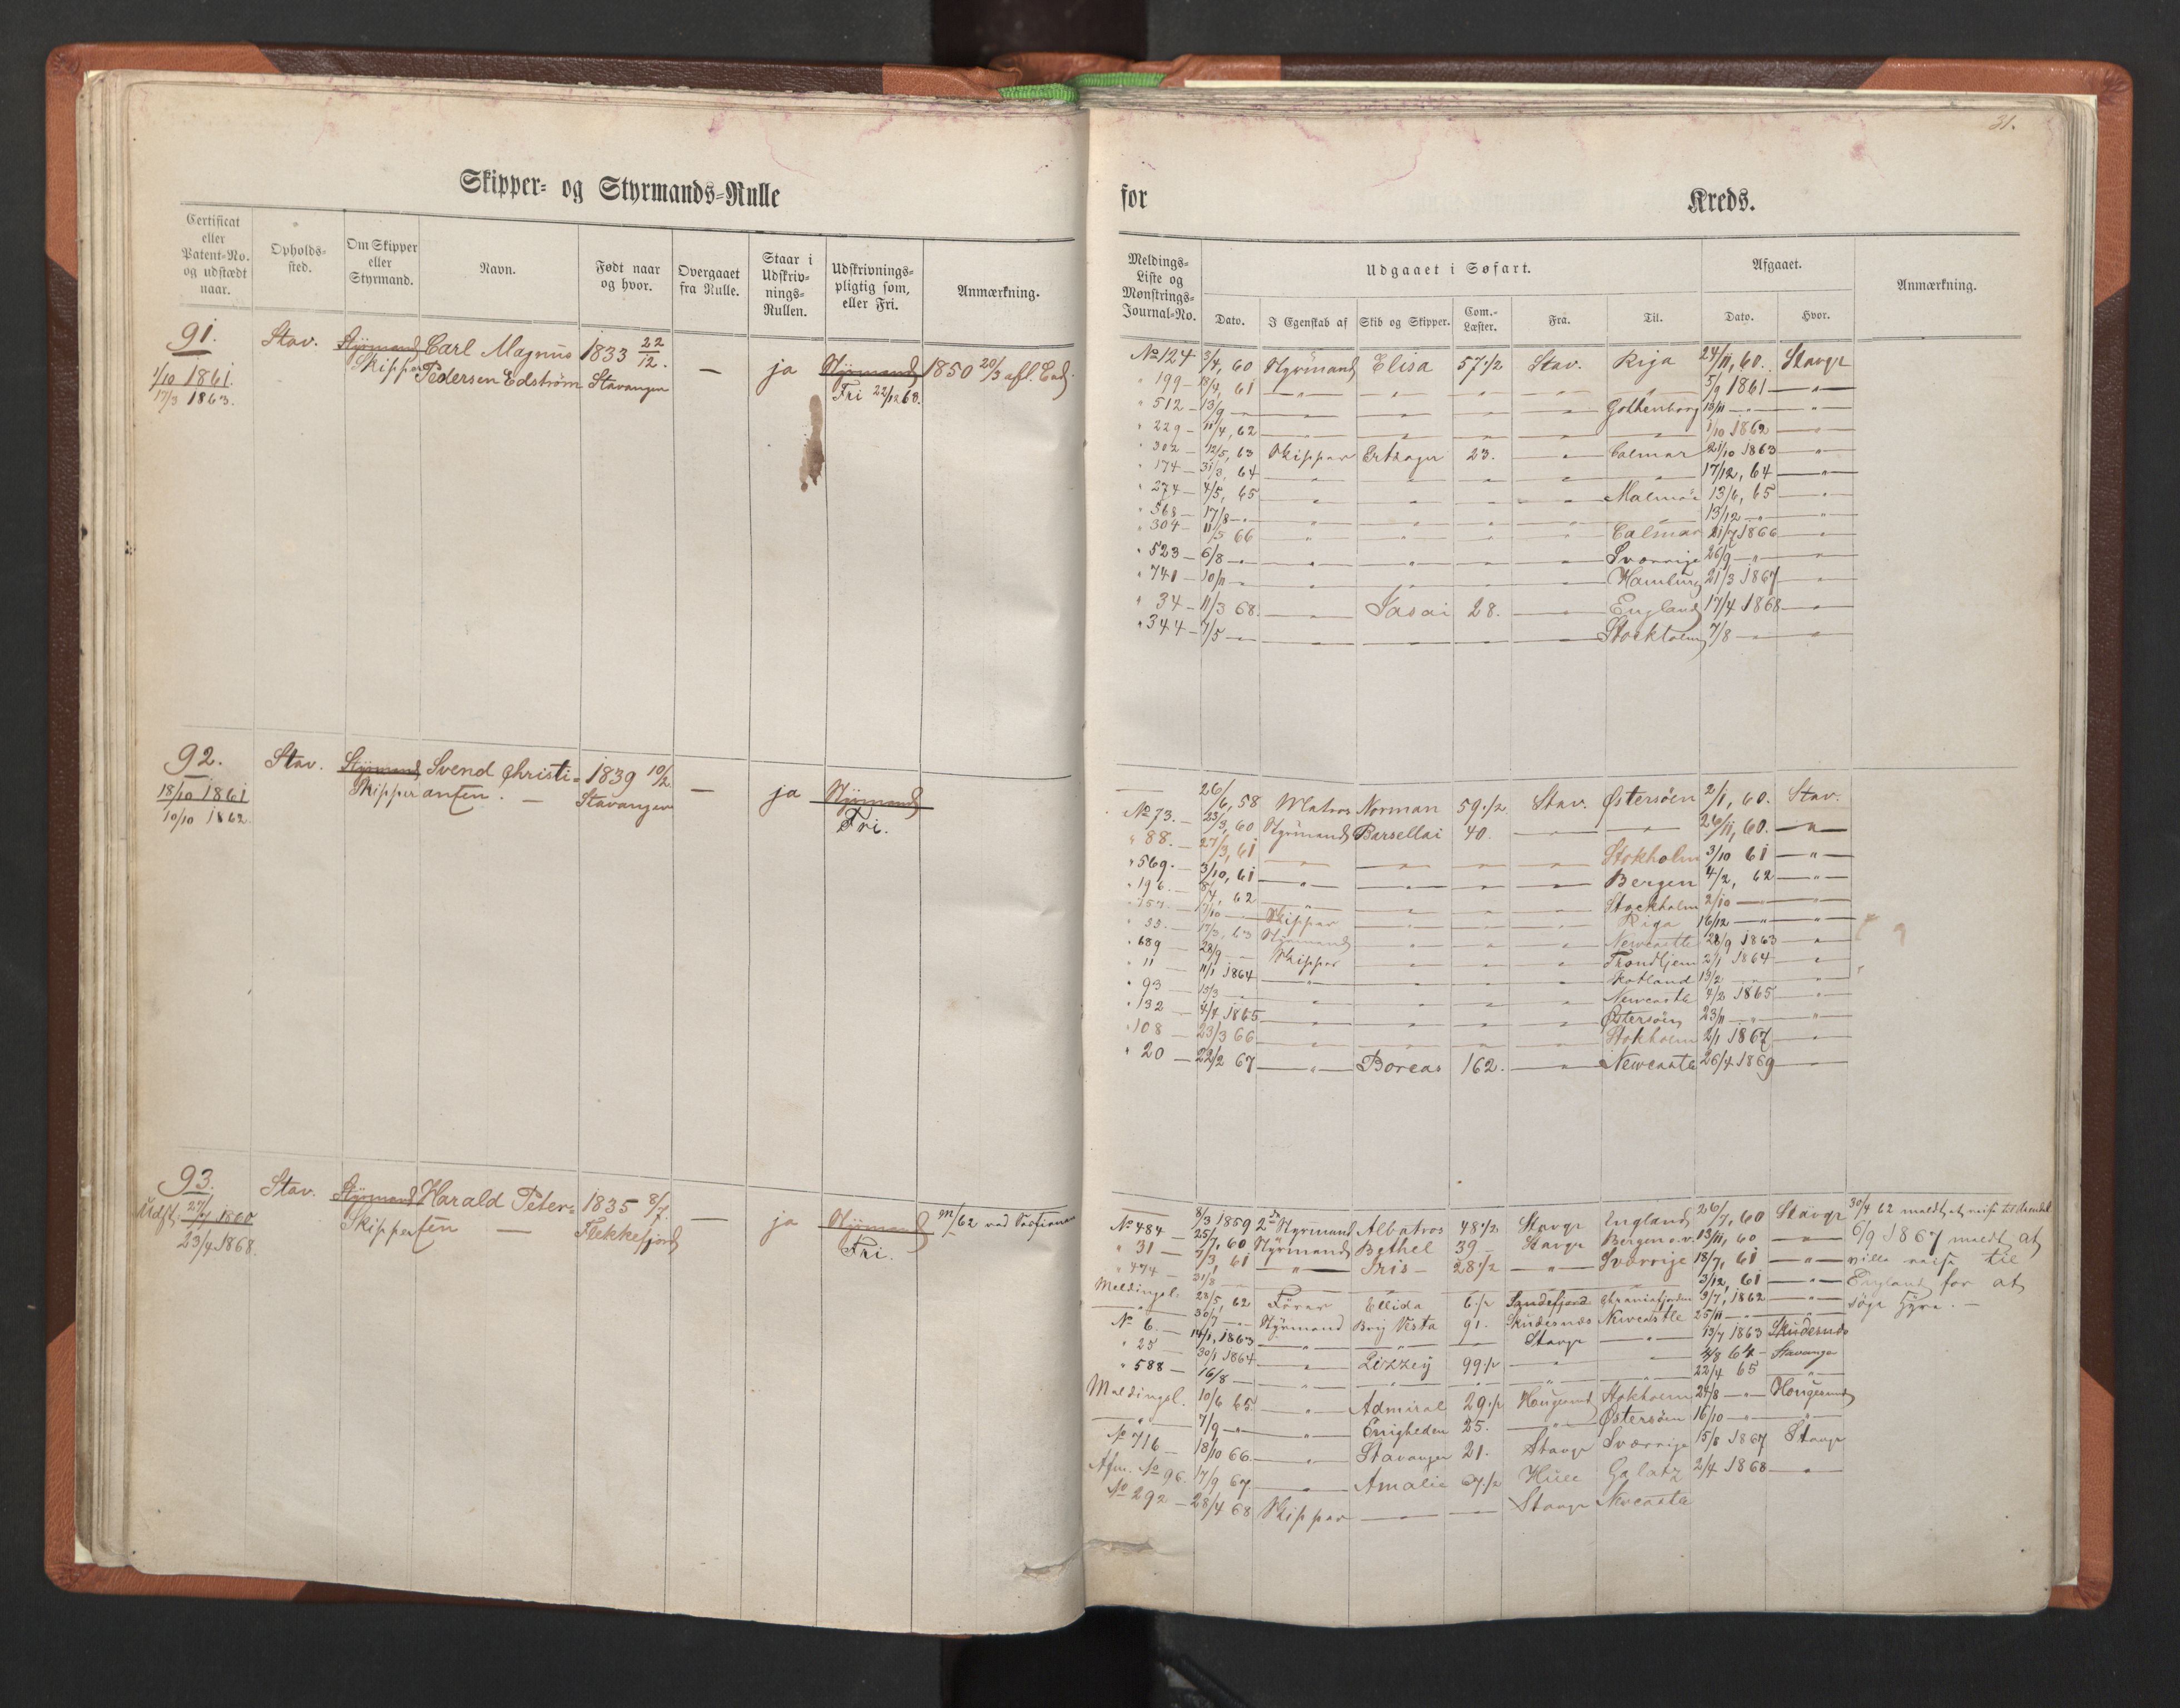 31.
Skipper- og Styrmands-Rulle
for Kreds.
Certificat eller Patent-No. og udstædt naar.
Opholds-sted.
Om Skipper eller Styrmand.
Navn.
Født naar og hvor.
Overgaaet fra Rulle.
Staar i Udskriv-nings-Rullen.
Udskrivnings-pligtig som, eller Fri.
Anmærkning.
Meldings-Liste og Mønstrings-Journal-No.
Udgaaet i Søfart.
Dato.
I Egenskab af
Skib og Skipper.
Com.-Læster.
Fra.
Til.
Afgaaet.
Dato.
Hvor.
Anmærkning.
91. Stav. Styrmand Carl Magnus 1833 22/12. — ja Styrmand 1850 20/3
1/10 1861. Skipper Pedersen Edström Stavanger Fri 22/12 63.
17/3 1863.
No 124 3/4, 60 Styrmand Elisa 57 1/2 Stav. Riga 24/11, 60. Stavgr
" 199 — 18/4, 61 — " — " — " — " — " 5/9 1861 — " —
" 512 — 13/9 — " — " — " — " — " — Gothenborg 13/11 — " — " —
" 229 — 11/4, 62 — " — " — " — " — " 1/10 1862 — " —
" 302 — 12/5, 63 Skipper Ertzager 23. — " — Calmar 21/10 1863 — " —
" 174 — 31/3, 64 — " — " — " — " — " 17/12, 64 — " —
" 274 — 4/5, 65 — " — " — " — " — Malmöe 13/6, 65 — " —
" 568 — 17/8 — " — " — " — " — " — " 13/12 — " — " —
" 304 — 11/5 66 — " — " — " — " — Calmar 21/7 1866 — " —
" 523 — 6/8 — " — " — " — " — " — Sverrige 26/9 — " — " —
" 741 — 10/11 — " — " — " — " — " — Hamburg 21/3 1867 — " —
" 34 — 11/3 68. — " — Jasai 28. — " — England 17/4 1868 — " —
" 344 — 7/5 — " — " — " — " — " — Stockholm 7/8 — " — " —
92. Stav. Styrmand Svend Christi- 1839 10/2. — ja Styrmand
18/10 1861 Skipper ansen. — Stavanger Fri.
10/10 1862.
— 26/6, 58 Matros Norman 59 1/2 Stav. Østersöen 2/1, 60. Stav.
No 73. — 23/3, 60 Styrmand Barsellai 40. — " — 26/11, 60. — " —
" 88. — 27/3, 61 — " — " — " — " — Stokholm 3/10 61 — " —
" 569. — 3/10, 61 — " — " — " — " — Bergen 4/2, 62 — " —
" 196. — 8/4, 62 — " — " — " — " — Stockholm 2/10 — " — " —
7/10 — " — Skipper — " — " — " — Riga 16/12 — " — " —
" 55. — 17/3, 63 Styrmand — " — " — " — Newcastle 28/9 1863 — " —
" 689 — 28/9 — Skipper — " — " — " — Trondhjem 2/1 1864 — " —
" 11 — 11/1 1864 — " — " — " — " — Skotland 13/2 — " — " —
" 93 — 15/3 — " — " — " — " — " — Newcastle 4/2 1865 — " —
" 132 — 4/4 1865 — " — " — " — " — Østersöen 23/11 — " — " —
" 108 — 23/3 66 — " — " — " — " — Stokholm 2/1 1867 — " —
" 20 — 22/2 67 — " — Boreas 162. — " — Newcastle 26/4 1869 — " —
93. Stav. Styrmand Harald Peter- 1835 8/7. — ja Styrmand
Udst. 27/7 1860 Skipper sen — Flekkefjord Fri.
23/4 1868.
— 8/3 1859 2den Styrmand Albatros 48 1/2 Stavgr England 26/7, 60 Stavgr 30/4 62 meldt, at reise til
No 484 — 25/7, 60 Styrmand Bethel 39 — Stavgr Bergen o.v. 13/11, 60 — " — 6/9 1867 meldt at
" 31 — 7/3, 61 — " — Iris — 28 1/2 — " — Sverrige 18/7, 61 — " — ville reise til
" 474 — 21/8 — " — " — " — 3/12, 61 — " — England for at
Meldingsl. 23/5, 62 Förer Ellida 6 1/2 Sandefjord Chraniafjorden 3/7, 1862 — " — söge Hyre. —
— " — 30/7 — " — Styrmand Brig Vesta 91. Skudesnæs Newcastle 25/11 — " — " —
No 6. — 14/1, 1863 — " — " — " — Stavgr — " — 13/7 1863 Skudesnæs
" 25 — 30/1 1864 — " — Lizzey 99 1/2 — " — " — 4/8 64 — Stavanger
" 588 — 16/8 — " — " — " — " — " — 22/4 65 — " —
Meldingsl. 10/6 65. — " — Admiral 29 1/2 Haugesund Stokholm 24/8 — " — Haugesund
— " — 7/9 — " — " — Enigheden 25. — " — Østersöen 16/10 — " — " —
No 716 — 18/10 66. — " — Stavanger 21. Stavgr Sverrige 15/8 1867 Stavgr
Afm. No 96. 17/9 67. — " — Amalie 67 1/2 Hull Galatz 2/4 1868 — " —
No 292 — 28/4 68 Skipper — " — " — Stavgr Newcastle